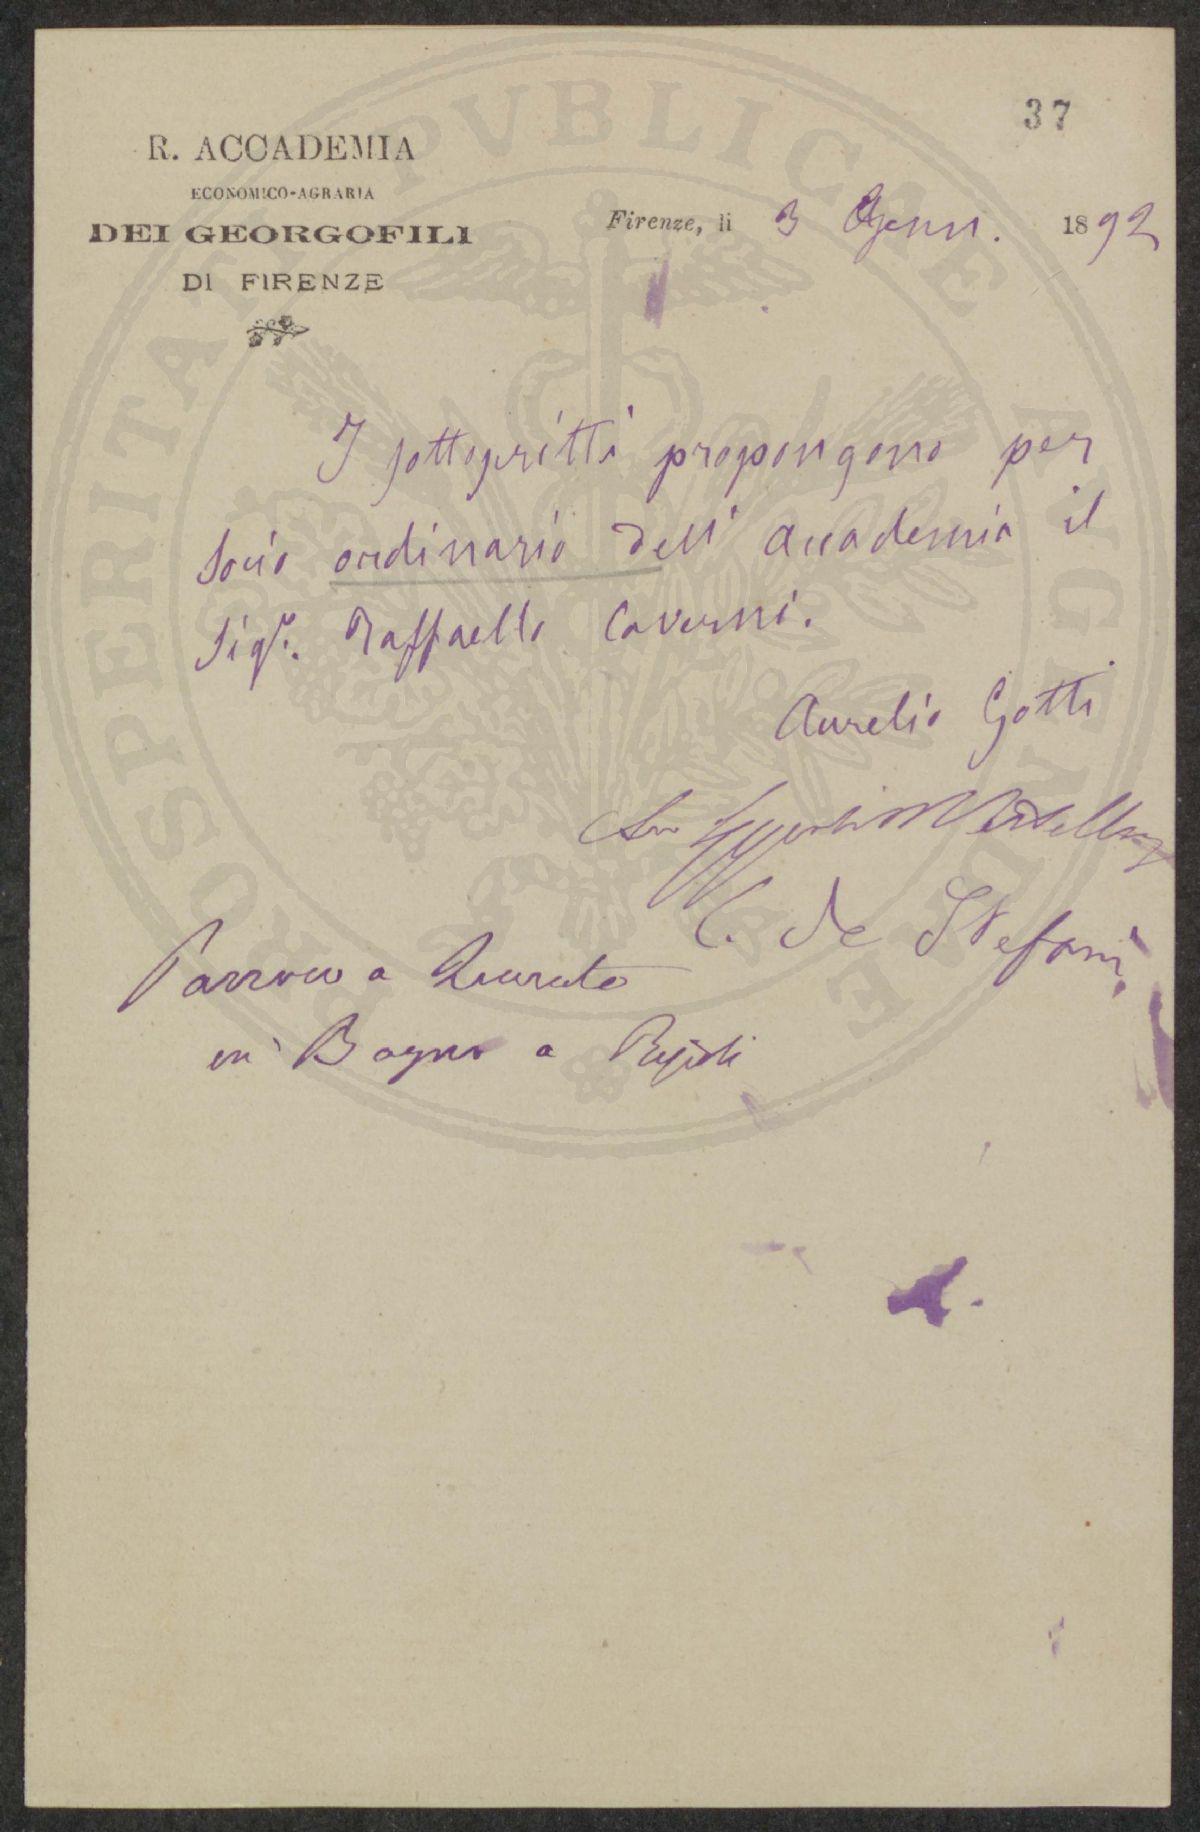 37
R. ACCADEMIA
ECONOMICO-AGRARIA
DEI GEORGOFILI
DI FIRENZE
Firenze, li 3 Genn. 1892
I sottoscritti propongono per
socio ordinario dell' Accademia il
Sigr. Raffaello Caverni.
Aurelio Gotti
C. de Stefani
Parroco a Quarate
in Bagno a Ripoli
PROSPERITATI PVBLICAE AVGENDAE